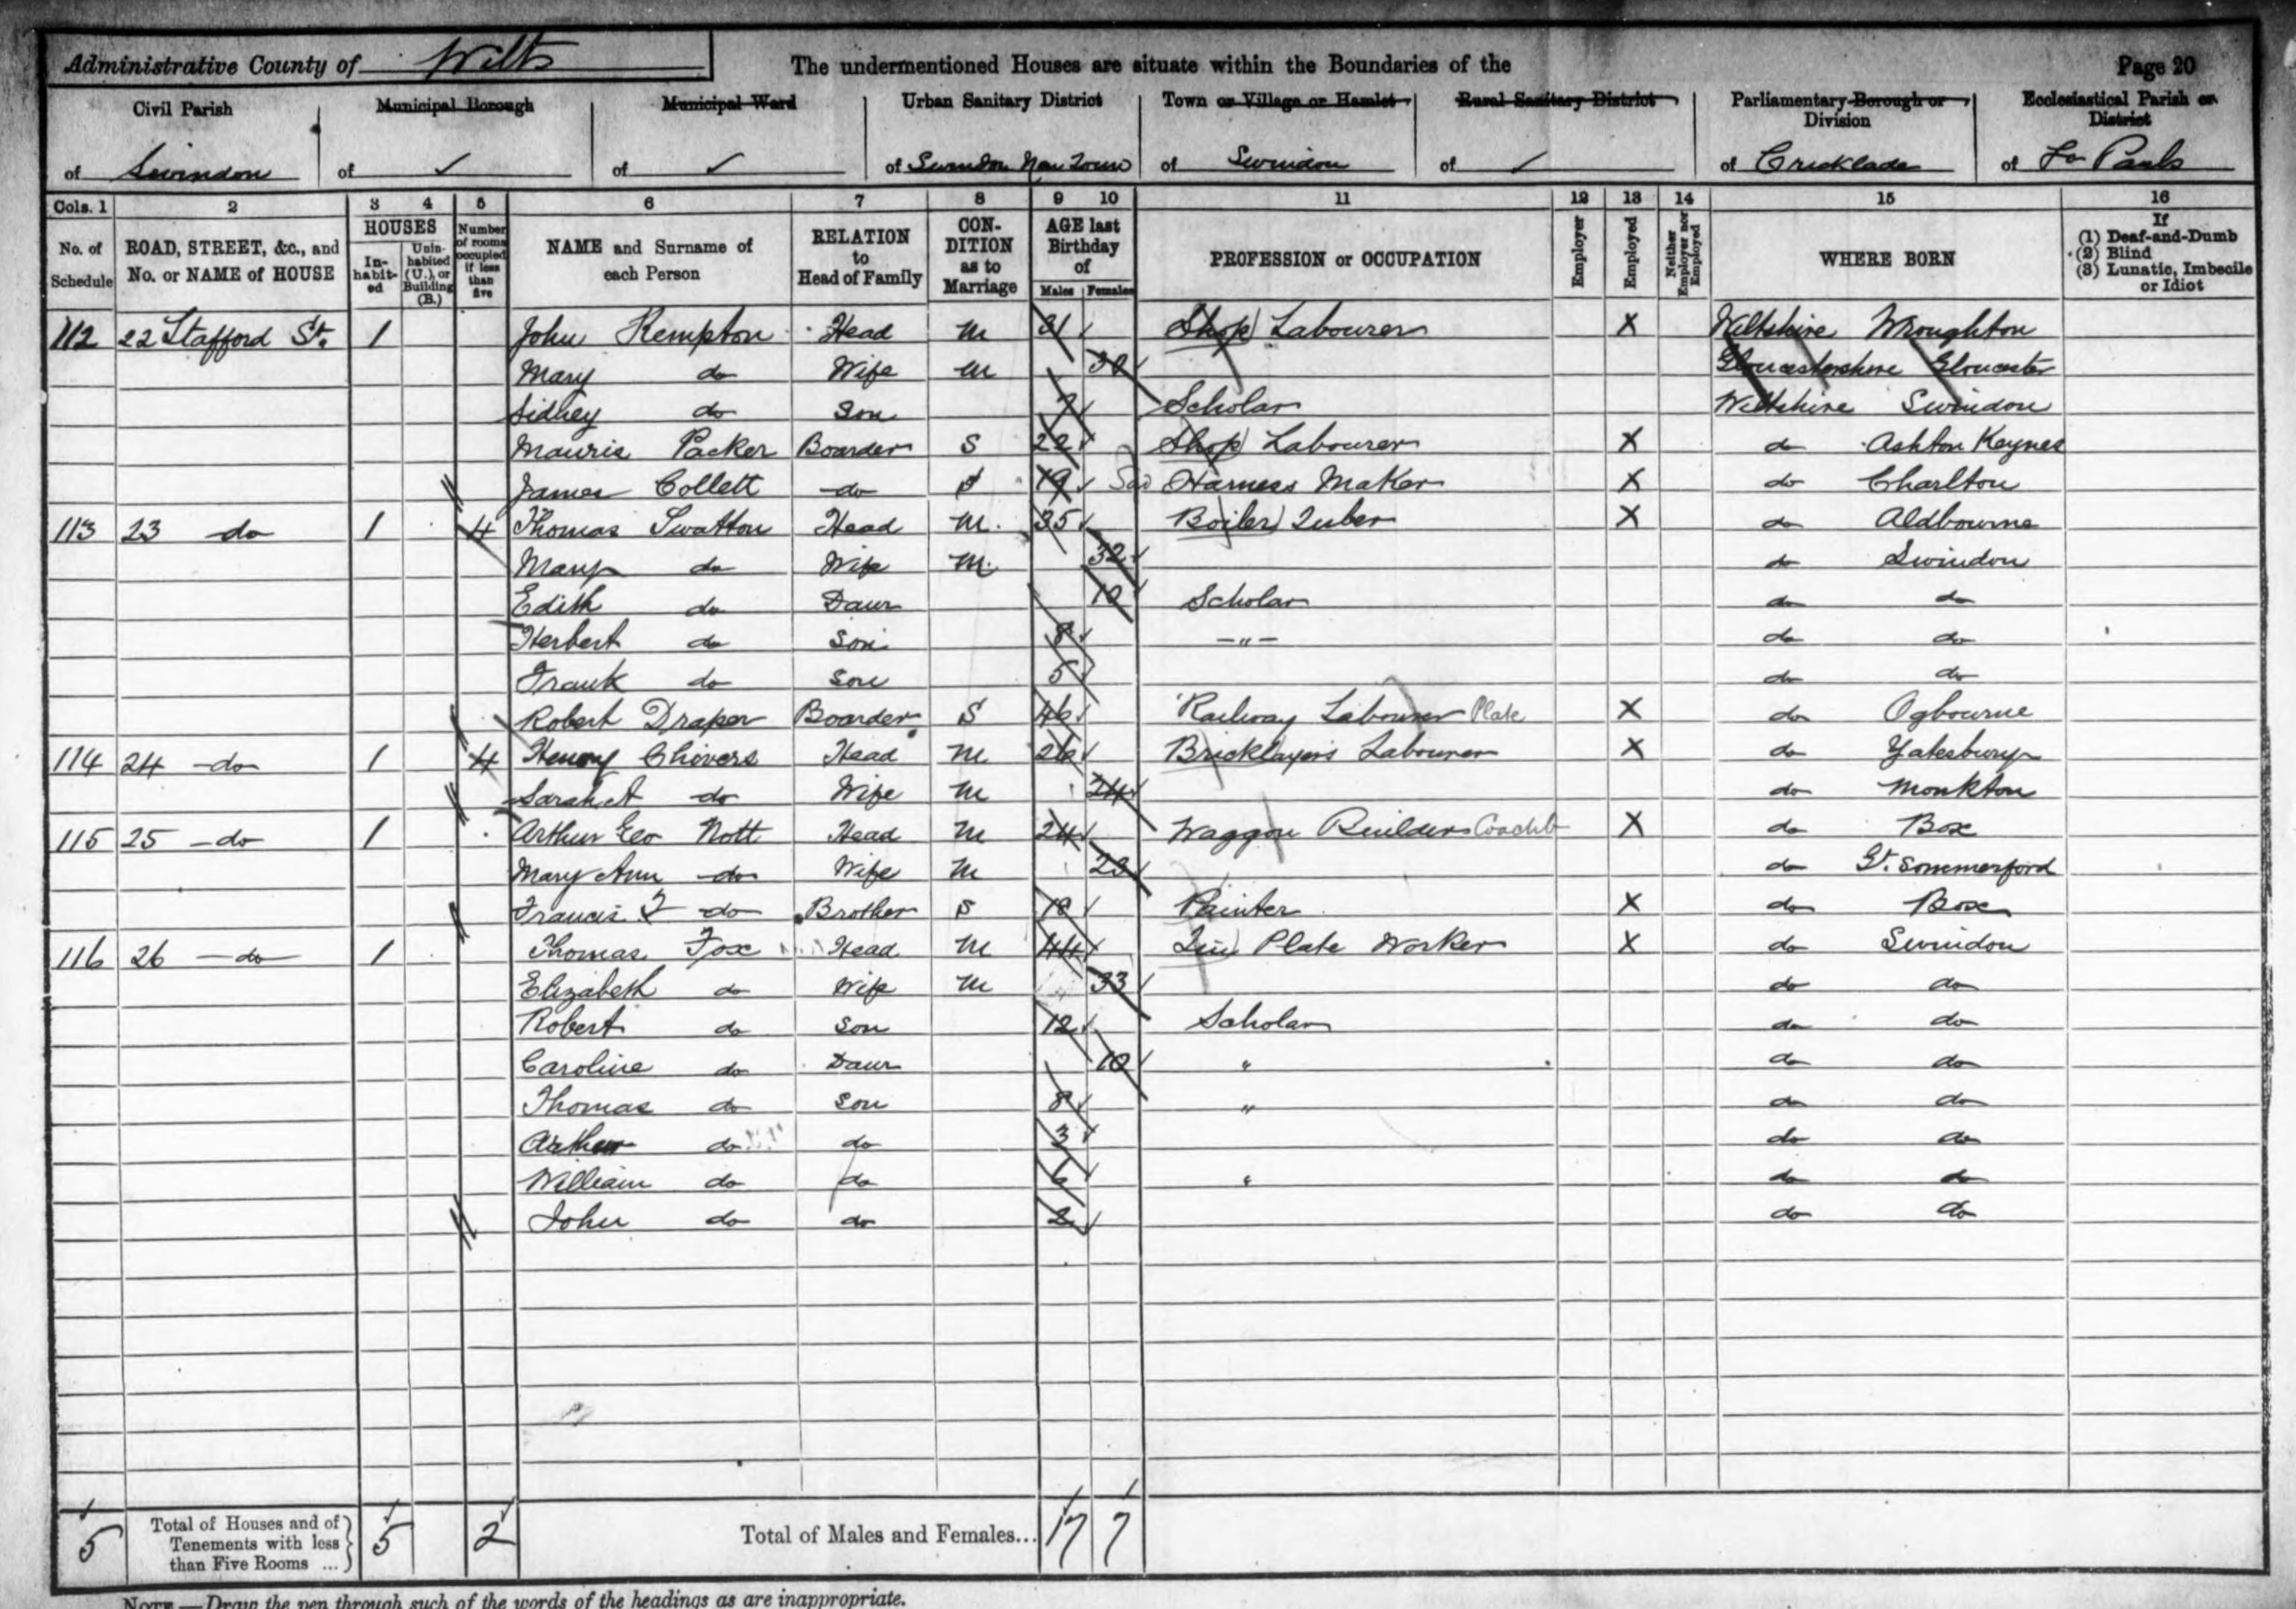 Administrative County of Wilts The undermentioned Houses are situate within the Boundaries of the Page 20
Civil Parish Municipal Borough Municipal Ward Urban Sanitary District Town or Village or Hamlet Rural Sanitary District Parliamentary Borough or Division Ecclesiastical Parish or District
of Swindon of ✓ of ✓ of Swindon New Town of Swindon of ✓ of Cricklade of Pauls
Cols. 1 2 3 4 5 6 7 8 9 10 11 12 13 14 15 16
No. of Schedule ROAD, STREET, &c., and No. or NAME of HOUSE HOUSES Inhabited Uninhabited (U.), or Building (B.) Number of rooms occupied if less than five NAME and Surname of each Person RELATION to Head of Family CONDITION as to Marriage AGE last Birthday of Males Females PROFESSION or OCCUPATION Employer Employed Neither Employer nor Employed WHERE BORN If (1) Deaf-and-Dumb (2) Blind (3) Lunatic, Imbecile or Idiot
112 22 Stafford St. 1 John Kempton Head M 31 Shop Labourer X Wiltshire Wroughton
Mary do Wife M 30 Gloucestershire Gloucester
Sidney do Son 7 Scholar Wiltshire Swindon
Mauris Packer Boarder S 22 Shop Labourer X do Ashton Keynes
James Collett do S 19 Harness Maker X do Charlton
113 23 do 1 4 Thomas Swatton Head M. 35 Boiler Tuber X do Aldbourne
Mary do Wife M. 32 do Swindon
Edith do Daur 10 Scholar do do
Herbert do Son 8 -"- do do
Frank do Son 5 do do
Robert Draper Boarder S 46 Railway Labourer Plate X do Ogbourne
114 24 do 1 4 Henry Chivers Head M 26 Bricklayers Labourer X do Yatesbury
Sarah A do Wife M 24 do Monkton
115 25 do 1 Arthur Geo Nott Head M 24 Waggon Builder Coachb X do Box
Mary Ann do Wife M 23 do Gt. Sommerford
Francis do Brother S Painter X do Box
116 26 do 1 Thomas Fox Head M 44 Tin Plate Worker X do Swindon
Elizabeth do Wife M 33 do do
Robert do Son 12 Scholar do do
Caroline do Daur 10 " do do
Thomas do Son 8 " do do
Arthur do do 3 do do
William do do 6 " do do
John do do 2 do do
5 Total of Houses and of Tenements with less than Five Rooms ... 5 2 Total of Males and Females... 17 7
NOTE.—Draw the pen through such of the words of the headings as are inappropriate.